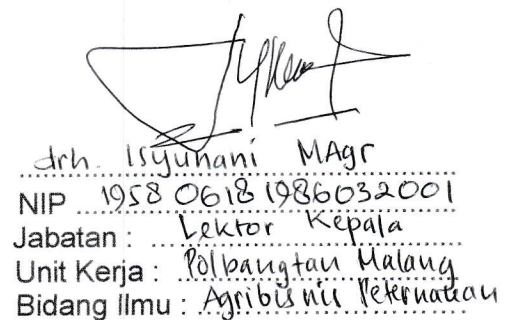 drh. Isyunani MAgr
NIP 19580618 1986032001
Jabatan : Lektor Kepala
Unit Kerja : Polbangtan Malang
Bidang Ilmu : Agribisnis Peternakan